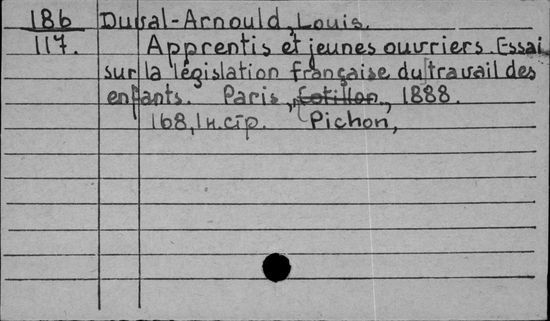 186 Duval-Arnould, Louis.
117. Apprentis et jeunes ouvriers. Essai
sur la législation française du travail des
enfants. Paris, Cotillon, 1888.
168, 1 н. стр. Pichon,